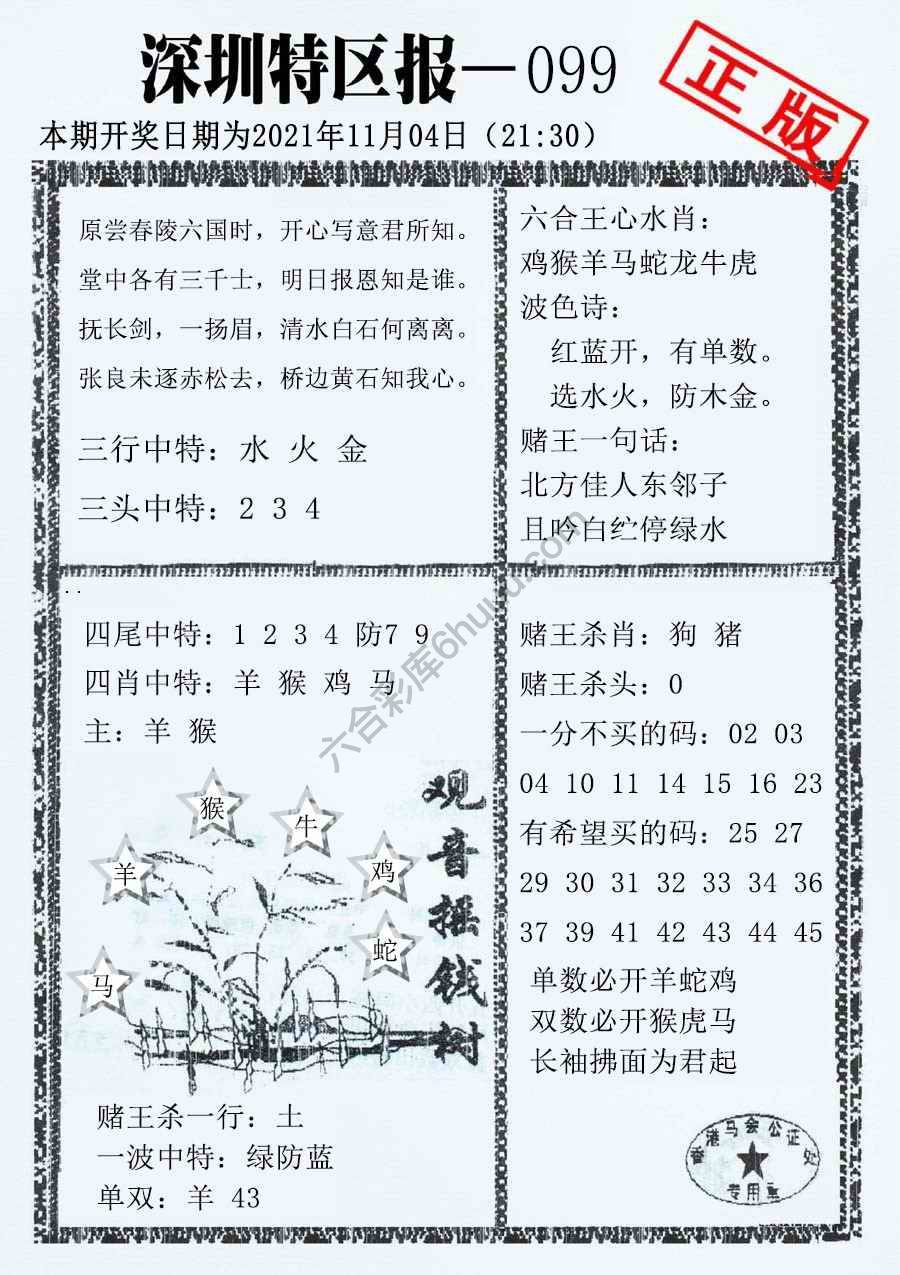 深圳特区报—099
正版
本期开奖日期为2021年11月04日（21:30）
原尝春陵六国时，开心写意君所知。
堂中各有三千士，明日报恩知是谁。
抚长剑，一扬眉，清水白石何离离。
张良未逐赤松去，桥边黄石知我心。
三行中特：水 火 金
三头中特：2 3 4
六合王心水肖：
鸡猴羊马蛇龙牛虎
波色诗：
红蓝开，有单数。
选水火，防木金。
赌王一句话：
北方佳人东邻子
且吟白纻停绿水
四尾中特：1 2 3 4 防7 9
四肖中特：羊 猴 鸡 马
主：羊 猴
猴
牛
羊
鸡
蛇
马
观音摇钱树
赌王杀一行：土
一波中特：绿防蓝
单双：羊 43
赌王杀肖：狗 猪
赌王杀头：0
一分不买的码：02 03
04 10 11 14 15 16 23
有希望买的码：25 27
29 30 31 32 33 34 36
37 39 41 42 43 44 45
单数必开羊蛇鸡
双数必开猴虎马
长袖拂面为君起
香港马会公证处
专用章
六合彩库6huu.com